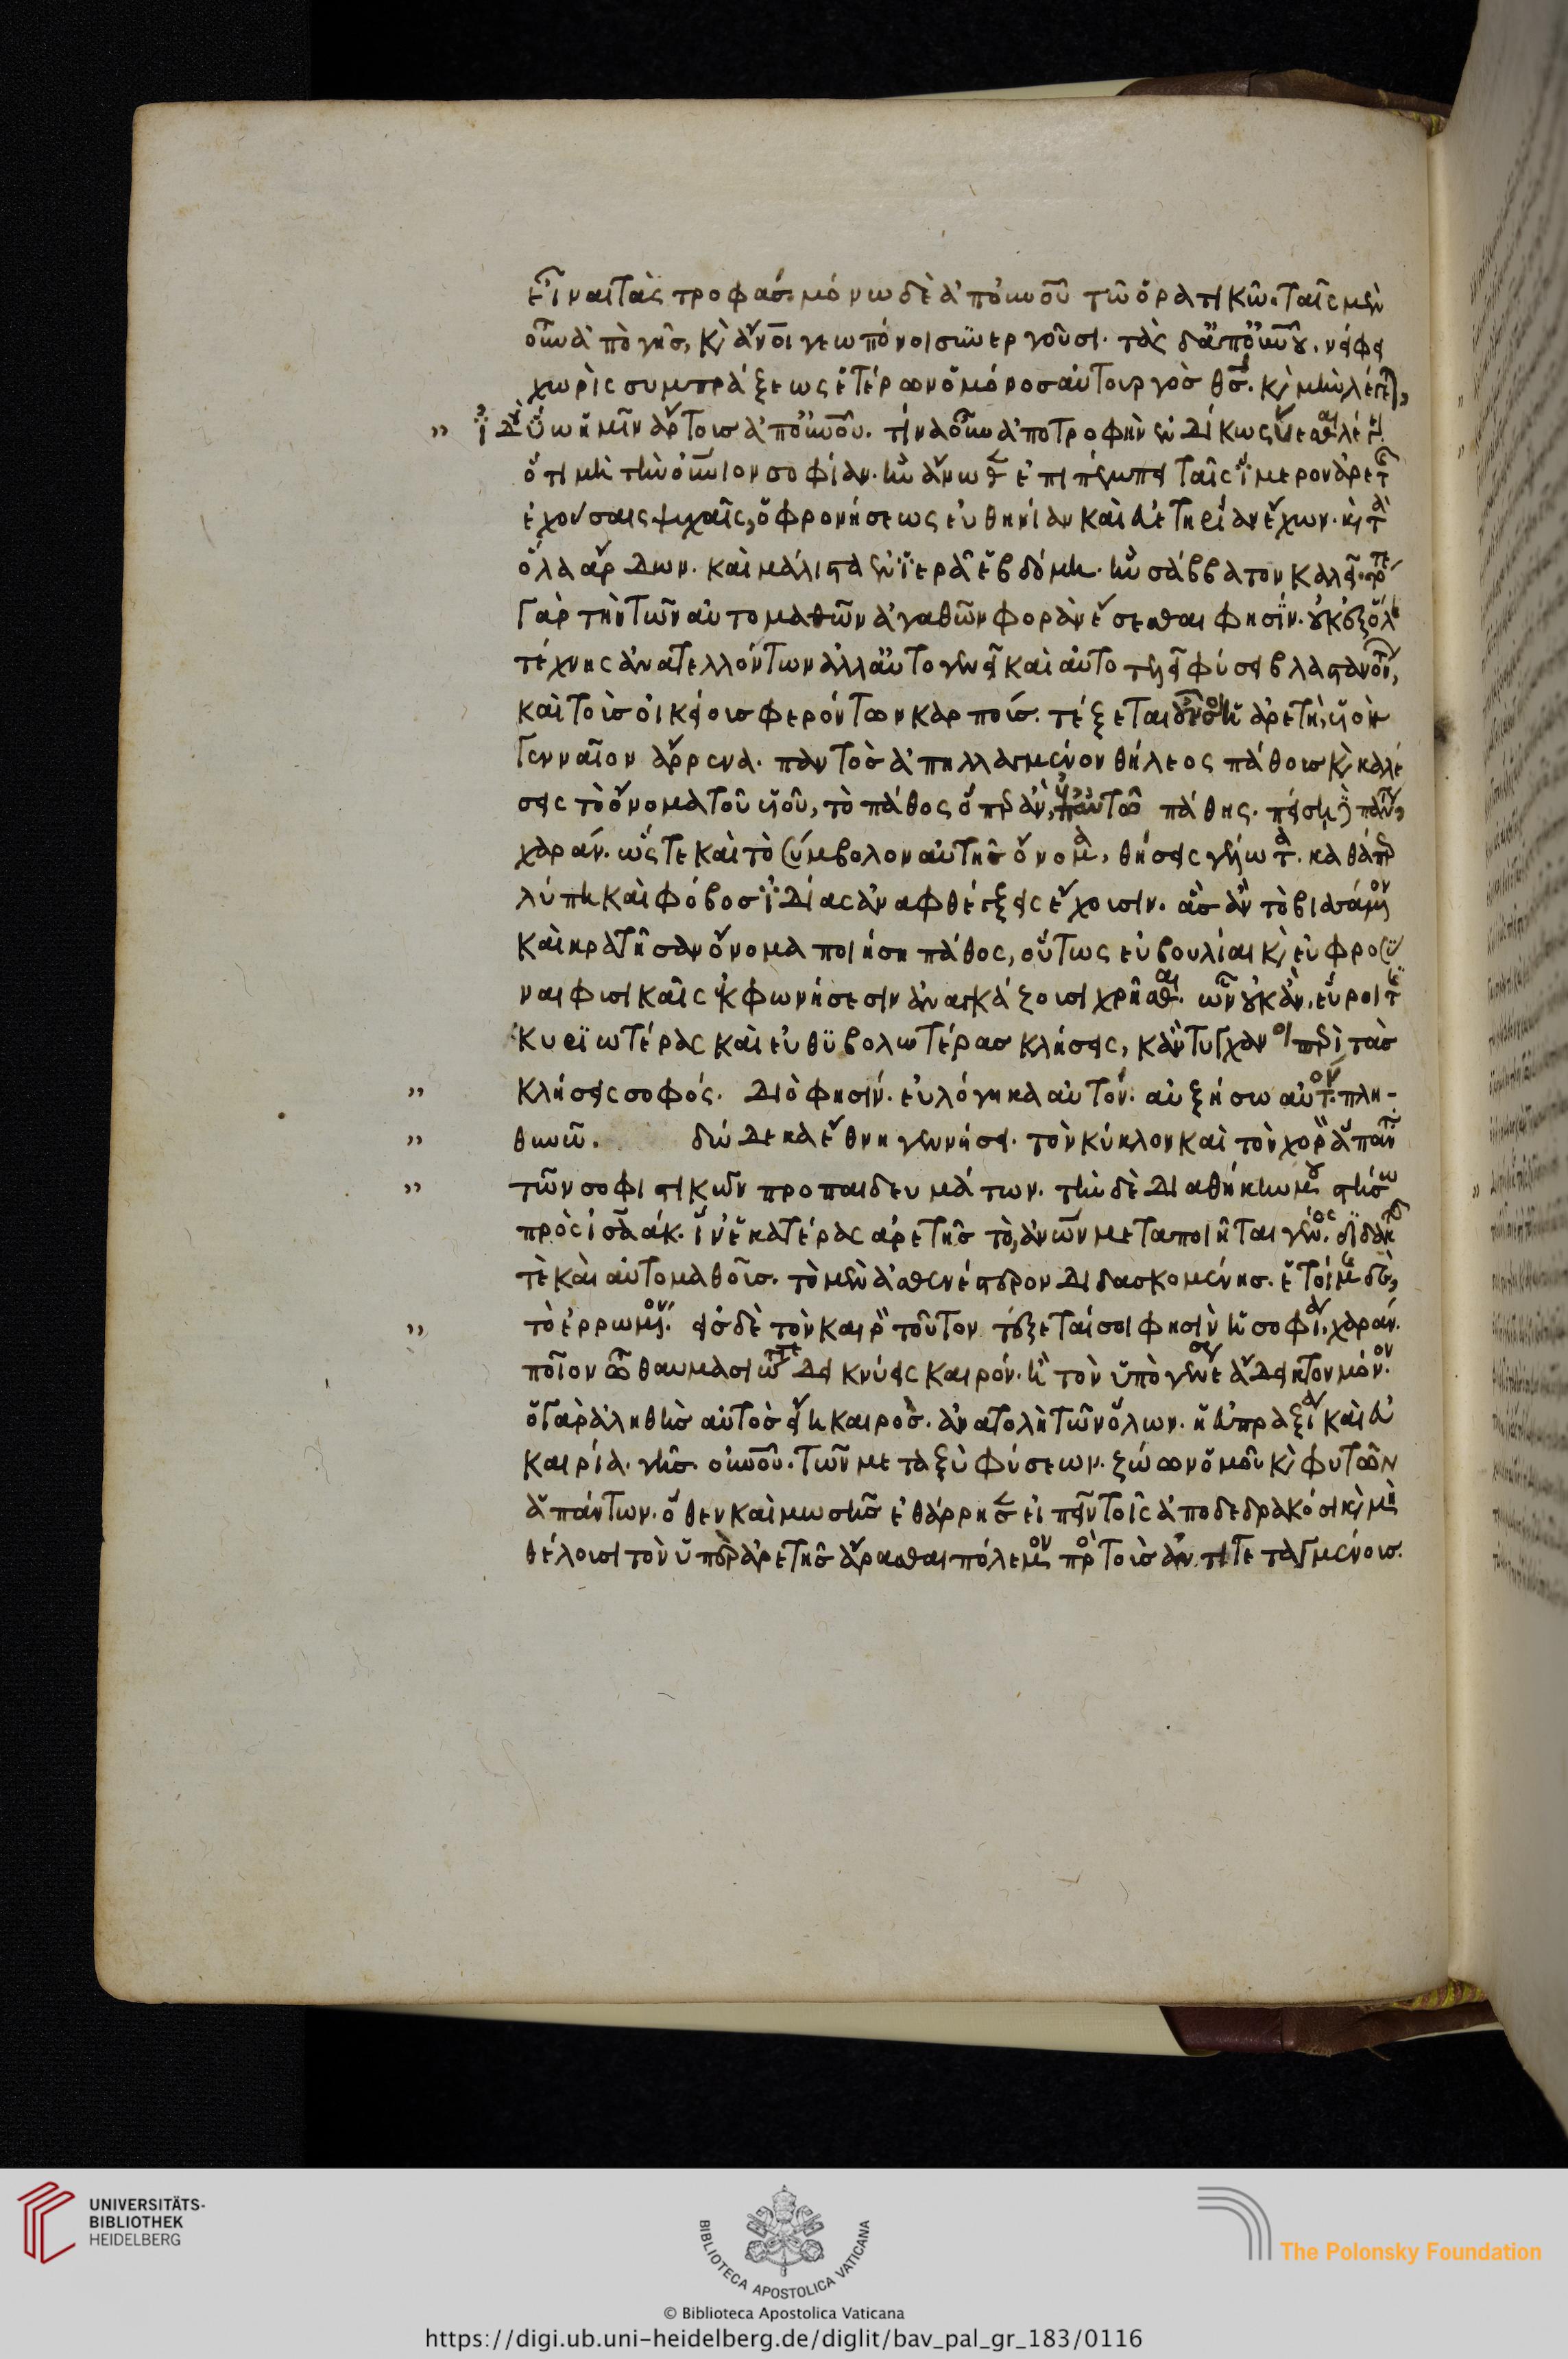 εἶναι τὰς τροφάς. μόνω δὲ ἀπ' οὐ(ρα)νοῦ τῶ ὁρατικῶ. ταῖς μὲν
οὖν ἀπὸ γῆς, κ(αὶ) ἄν(θρωπ)οι γεωπόνοι συνεργοῦσι. τὰς δ' ἀπ' οὐ(ρα)νοῦ. νίφει
χωρὶς συμπράξεως ἑτέρων ὁ μόνος αὐτουργὸς θ(εό)ς. κ(αὶ) μὴν λέγετ(αι),
ἰδοὺ ὕω ἡμῖν ἄρτους ἀπ' οὐ(ρα)νοῦ. τίνα οὖν ἀπο τροφὴν ἐνδίκως ὕεσθαι λέγει
ὅτι μὴ τὴν οὐ(ρά)νιον σοφίαν. ἣν ἄνωθ(εν) ἐπιπέμπει ταῖς ἵμερον ἀρετ(ῆς)
ἐχούσαις ψυχαῖς, ὁ φρονήσεως εὐθηνίαν καὶ εὐετηρίαν ἔχων. κ(αὶ) τὰ
ὅλα ἄρδων. καὶ μάλιστα ἐν ἱερᾶ ἑβδόμη. ἣν σάββατον καλεῖ. τότε
γὰρ τὴν τῶν αὐτομαθῶν ἀγαθῶν φορὰν ἔσεσθαι φησὶν. οὐκ ἐξ ὅλ(ης)
τέχνης ἀνατελλόντων ἀλλ' αὐτογενεῖ καὶ αὐτοτελεῖ φύσει βλαστανόντ(ων),
καὶ τοὺς οἰκείους φερόντων καρπούς. τέξεται οὖν σοι ἡ ἀρετὴ, υἱὸν
γενναῖον ἄρρενα. παντὸς ἀπηλλαγμένον θήλεος πάθους κ(αὶ) καλέ
σεις τὸ ὄνομα τοῦ υἱοῦ, τὸ πάθος ὅπ(ερ) ἂν, ἐπ' αὐτῶ πάθης. πείση δ(ὲ) πάντ(ως),
χαράν. ὥστε καὶ τὸ σύμβολον αὐτῆς ὄνομα, θήσεις γέλωτα. καθάπ(ερ)
λύπη καὶ φόβος ἰδίας ἀναφθέγξεις ἔχουσιν. ἃς ἂν τὸ βιασάμ(εν)ον
καὶ κρατῆσαν ὄνομα ποιήση πάθος, οὕτως εὐβουλίαι κ(αὶ) εὐφροσύ
ναι φυσικαῖς ἐκφωνήσεσιν ἀναγκάζουσι χρῆσθαι. ὧν οὐκ ἂν, εὕροι τ(ις)
κυριωτέρας καὶ εὐθυβολωτέρας κλήσεις, κἂν τυγχάνοι π(ερ)ὶ τὰς
κλήσεις σοφός. διό φησιν. εὐλόγηκα αὐτόν. αὐξήσω αὐτόν. πλη-
θυνῶ. δώδεκα ἔθνη γεννήσει. τὸν κύκλον καὶ τὸν χορὸ(ν) ἅπαντ(α)
τῶν σοφιστικῶν προπαιδευμάτων. τὴν δὲ διαθήκην μου στήσω
πρὸς ἰσαάκ. ἵν' ἑκατέρας ἀρετῆς τὸ, ἀν(θρώπ)ων μεταποιῆται γένος. διδακτ(ῆς)
τὲ καὶ αὐτομαθοῦς. τὸ μὲν ἀσθενέστερον διδασκομένης. ἑτοίμ(ης) δὲ,
τὸ ἐρρωμ(έν)ον. εἰς δὲ τὸν καιρὸ(ν) τοῦτον τέξεται σοι φησὶν ἡ σοφία. χαράν.
ποῖον ὦ θαυμασιώτ(α)τε δεικνύεις καιρόν. ἢ τὸν ὑπὸ γενέσε(ως) ἄδεικτον μόνον.
ὁ γὰρ ἀληθὴς αὐτὸς εἴη καιρὸς. ἀνατολὴ τῶν ὅλων. ἡ εὐπραξία καὶ εὐ
καιρία. γῆς. οὐ(ρα)νοῦ. τῶν μεταξὺ φύσεων. ζώων ὁμοῦ κ(αὶ) φυτῶν
ἁπάντων. ὅθεν καὶ μωσῆς ἐθάρρησ(εν) εἰπεῖν τοῖς ἀποδεδρακόσι κ(αὶ) μὴ
θέλουσι τὸν ὑπ(ὲρ) ἀρετῆς ἄρασθαι πόλεμον πρὸ(ς) τοὺς ἀντιτεταγμένους.
UNIVERSITÄTS-
BIBLIOTHEK
HEIDELBERG
BIBLIOTECA APOSTOLICA VATICANA
The Polonsky Foundation
© Biblioteca Apostolica Vaticana
https://digi.ub.uni-heidelberg.de/diglit/bav_pal_gr_183/0116